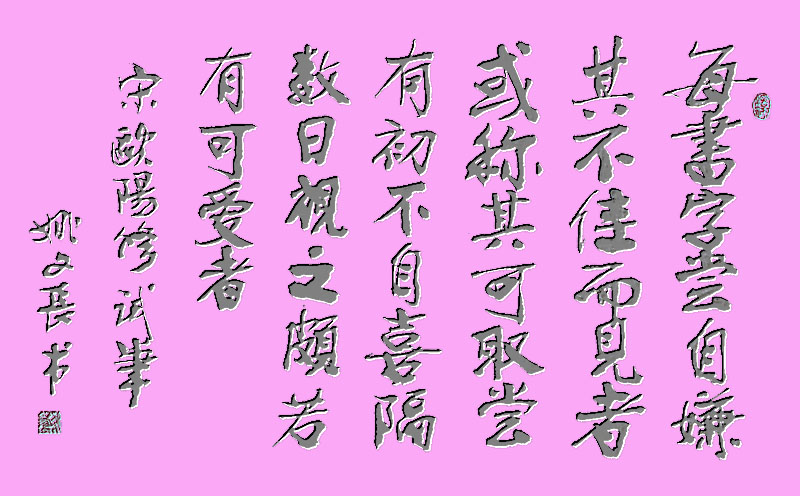 每書字嘗自嫌
其不佳而見者
或称其可取嘗
有初不自喜隔
数日視之頗若
有可愛者
宋歐陽修試筆
姚文長书